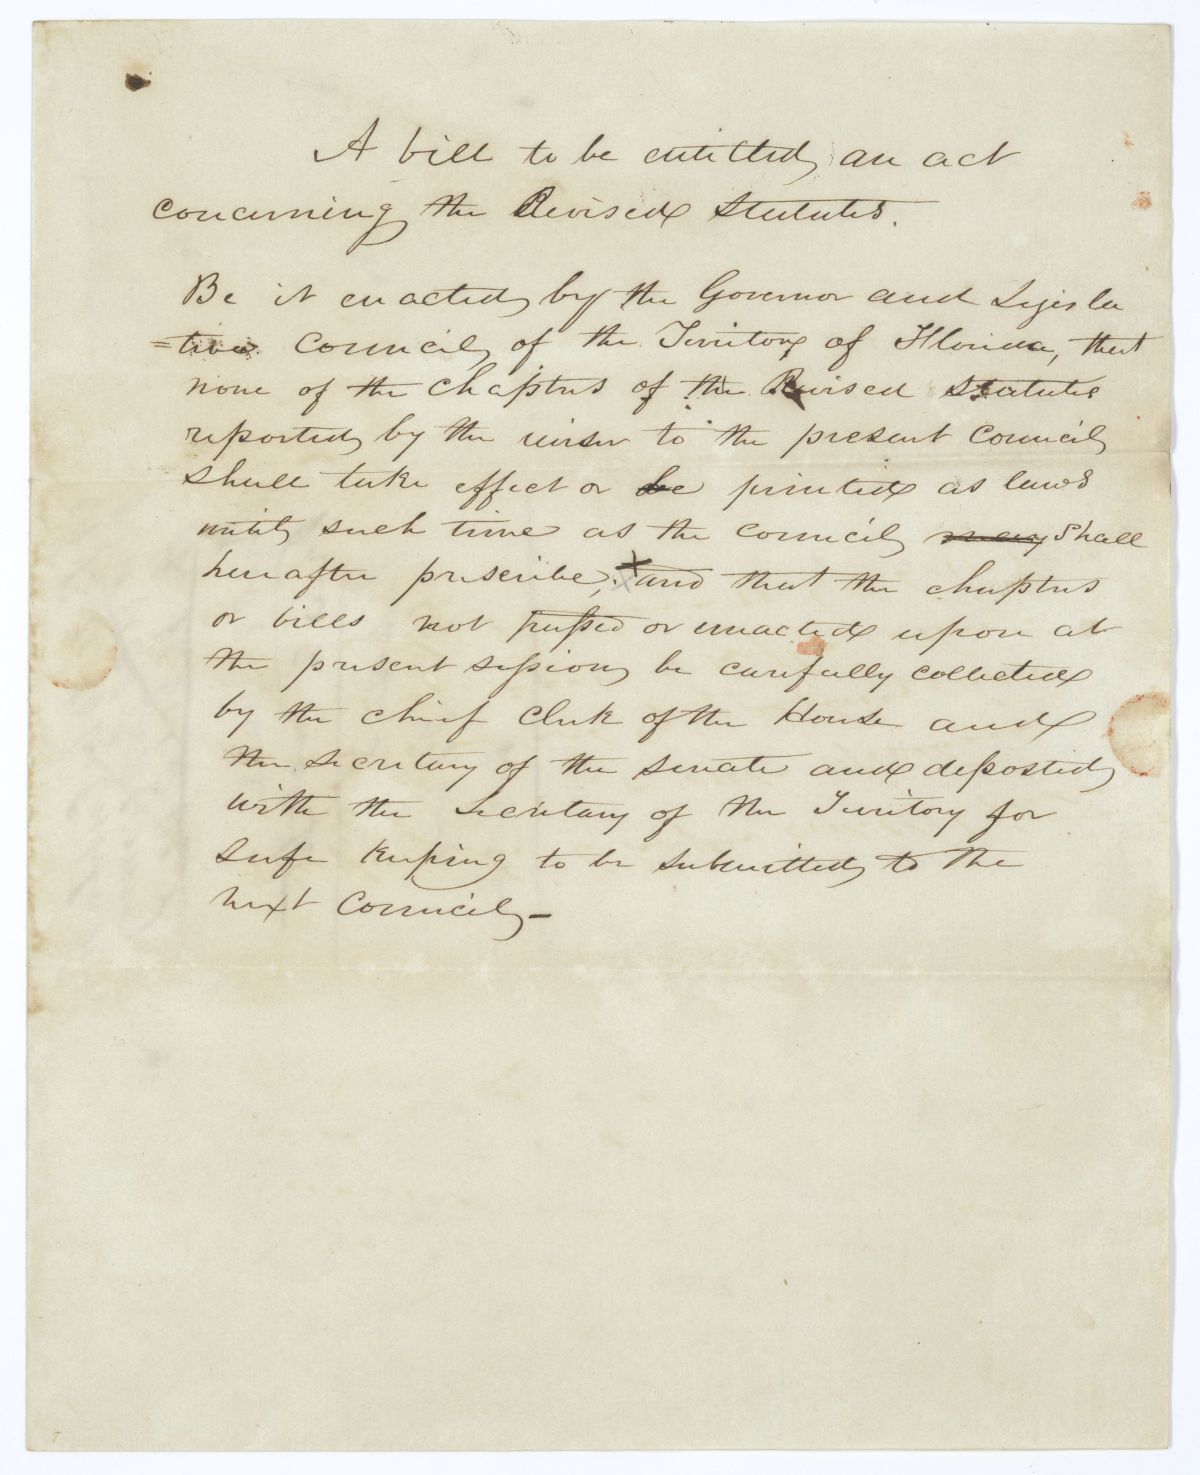 A bill to be entitled, an act
concerning the Revised Statutes.
Be it enacted by the Governor and Legisla
=tive Council of the Territory of Florida, that
none of the chapters of the Revised Statutes
reported by the reviser to the present Council
shall take effect or be printed as laws
until such time as the Council may shall
hereafter prescribe, and that the chapters
or bills not passed or enacted upon at
the present session be carefully collected
by the chief clerk of the House and
the secretary of the senate and deposted
with the Secretary of the Territory for
safe keeping to be submitted to the
next Council-